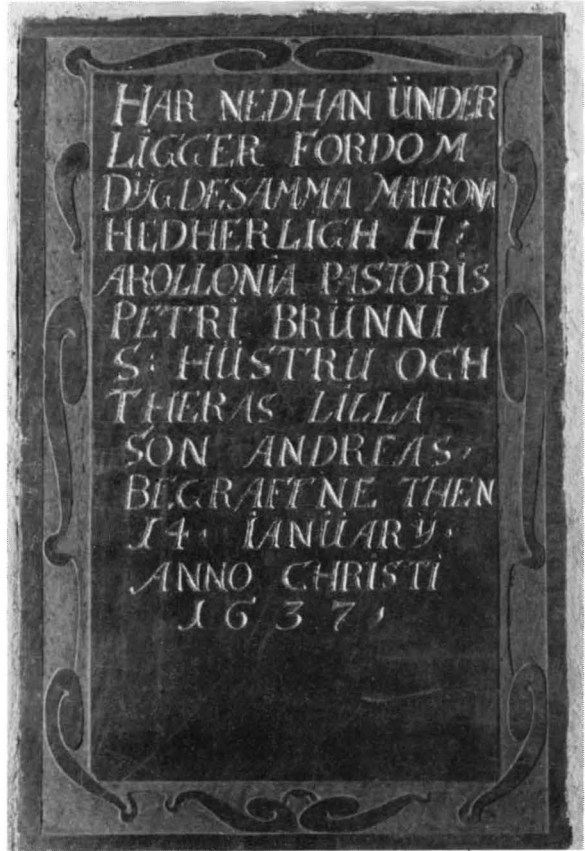 HAR NEDHAN ÜNDER
LIGGER FORDOM
DŸGDESAMMA MATRONA
HEDHERLIGH H:
AROLLONIA PASTORIS
PETRI BRÜNNI
S: HÜSTRU OCH
THERAS LILLA
SON ANDREAS,
BEGRAFTNE THEN
14. IANÜARY.
ANNO CHRISTI
1637,